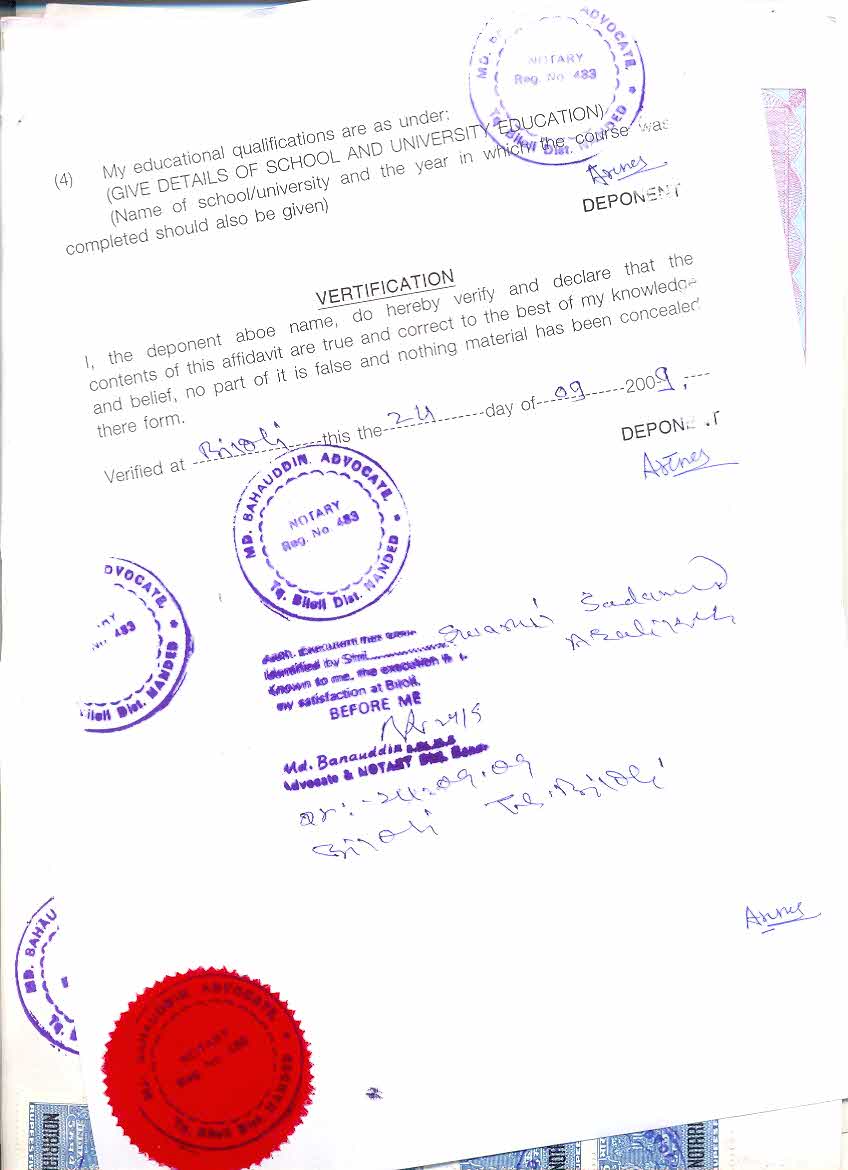 MD. BAHAUDDIN. ADVOCATE.
NOTARY
Reg. No. 483
Tq. Biloli Dist. NANDED
(4) My educational qualifications are as under:
(GIVE DETAILS OF SCHOOL AND UNIVERSITY EDUCATION)
(Name of school/university and the year in which the course was
completed should also be given)
DEPONENT
VERTIFICATION
I, the deponent aboe name, do hereby verify and declare that the
contents of this affidavit are true and correct to the best of my knowledge
and belief, no part of it is false and nothing material has been concealed
there form.
Verified at Biloli this the 24 day of 09 2009.
DEPONENT
MD. BAHAUDDIN. ADVOCATE.
NOTARY
Reg. No. 483
Tq. Biloli Dist. NANDED
DVOCATE.
483
Biloli Dist. NANDED
Swami Sadanand
Identified by Shri
Known to me, the execution is
my satisfaction at Biloli.
BEFORE ME
Md. Bahauddin
Advocate & NOTARY
24.09.09
Biloli Tq. Biloli
MD. BAHAU
Tq.
MD. BAHAUDDIN. ADVOCATE.
NOTARY
Reg. No. 483
Tq. Biloli Dist. NANDED